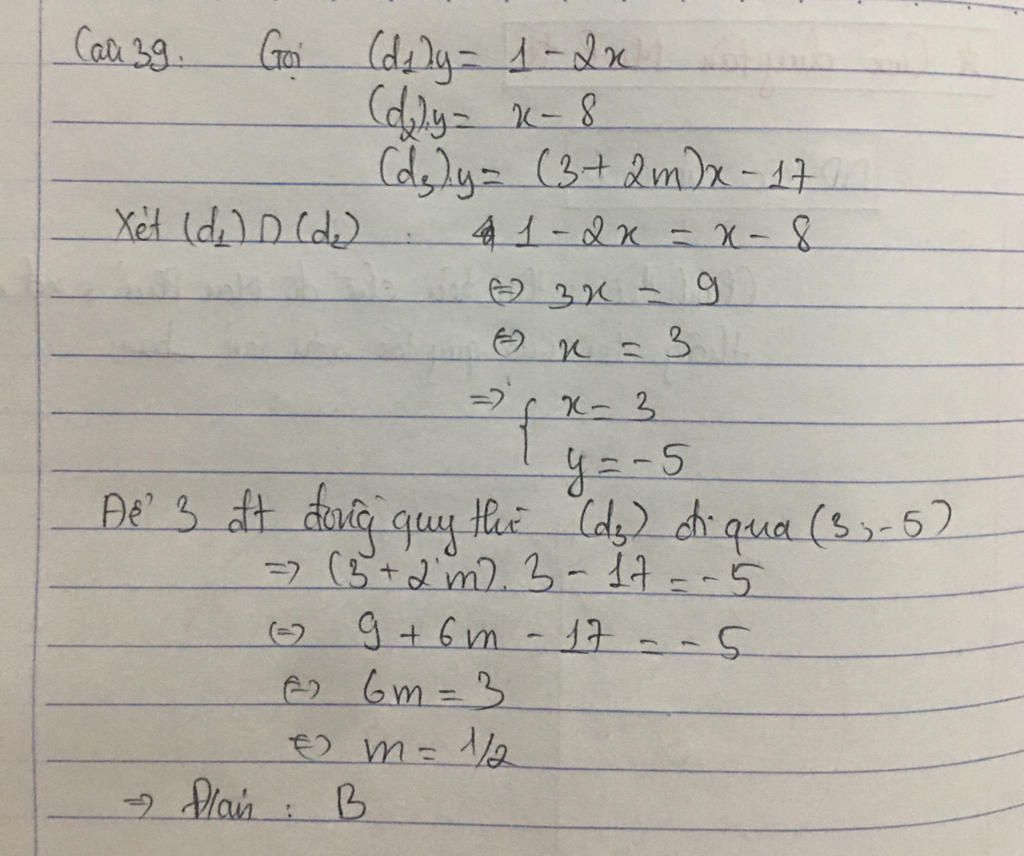 Câu 39. Gọi (d₁).y = 1 - 2x
(d₂).y = x - 8
(d₃).y = (3 + 2m)x - 17
Xét (d₁) ∩ (d₂) : 1 - 2x = x - 8
⇔ 3x = 9
⇔ x = 3
⇒ { x = 3
y = -5
Để 3 đt đồng quy thì (d₃) đi qua (3; -5)
⇒ (3 + 2m). 3 - 17 = -5
⇔ 9 + 6m - 17 = -5
⇔ 6m = 3
⇔ m = 1/2
⇒ Đ/án : B